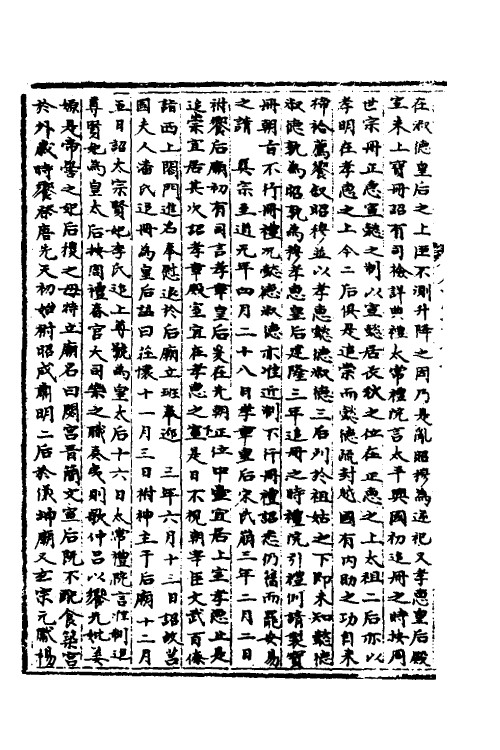 在淑德皇后之上匪不測升降之因乃是亂昭穆為逆祀又孝惠皇后殿
室未上寶冊詔有司檢詳典禮太常禮院言太平興國初追冊之時按周
世宗冊正惠宣懿之制以宣懿居長秋之位在正惠之上太祖二后亦以
孝明在孝惠之上今二后俱是追崇而懿德疏封越國有內助之功自來
禘祫薦饗叙昭穆並以孝惠懿德淑德三后列於祖姑之下即未知懿德
淑德孰為昭孰為穆孝惠皇后建隆三年追冊之時禮院引禮例請製寶
冊朝旨不行冊禮况懿德淑德亦准近制不行冊禮詔悉仍舊而罷安易
之請 真宗至道元年四月二十八日孝章皇后宋氏崩三年二月二日
祔饗后廟初有司言孝章皇后爰在先朝正位中壼宜居上室孝惠止是
追崇宜居其次詔孝章殿室宜在孝惠之室是日不視朝宰臣文武百僚
詣西上閤門進名奉慰退於后廟立班奉迎 三年六月十三日詔故莒
國夫人潘氏追冊為皇后謚曰莊懷十一月三日祔神主于后廟十二月
五日詔太宗賢妃李氏追上尊號為皇太后十六日太常禮院言准制追
尊賢妃為皇太后按周禮春官大司樂之職奏夷則歌仲呂以饗先妣姜
嫄是帝嚳之妃后稷之母特立廟名曰閟宮晉簡文宣后既不配食築宮
於外歲時饗祭唐先天初始祔昭成肅明二后於儀坤廟又玄宗元獻楊